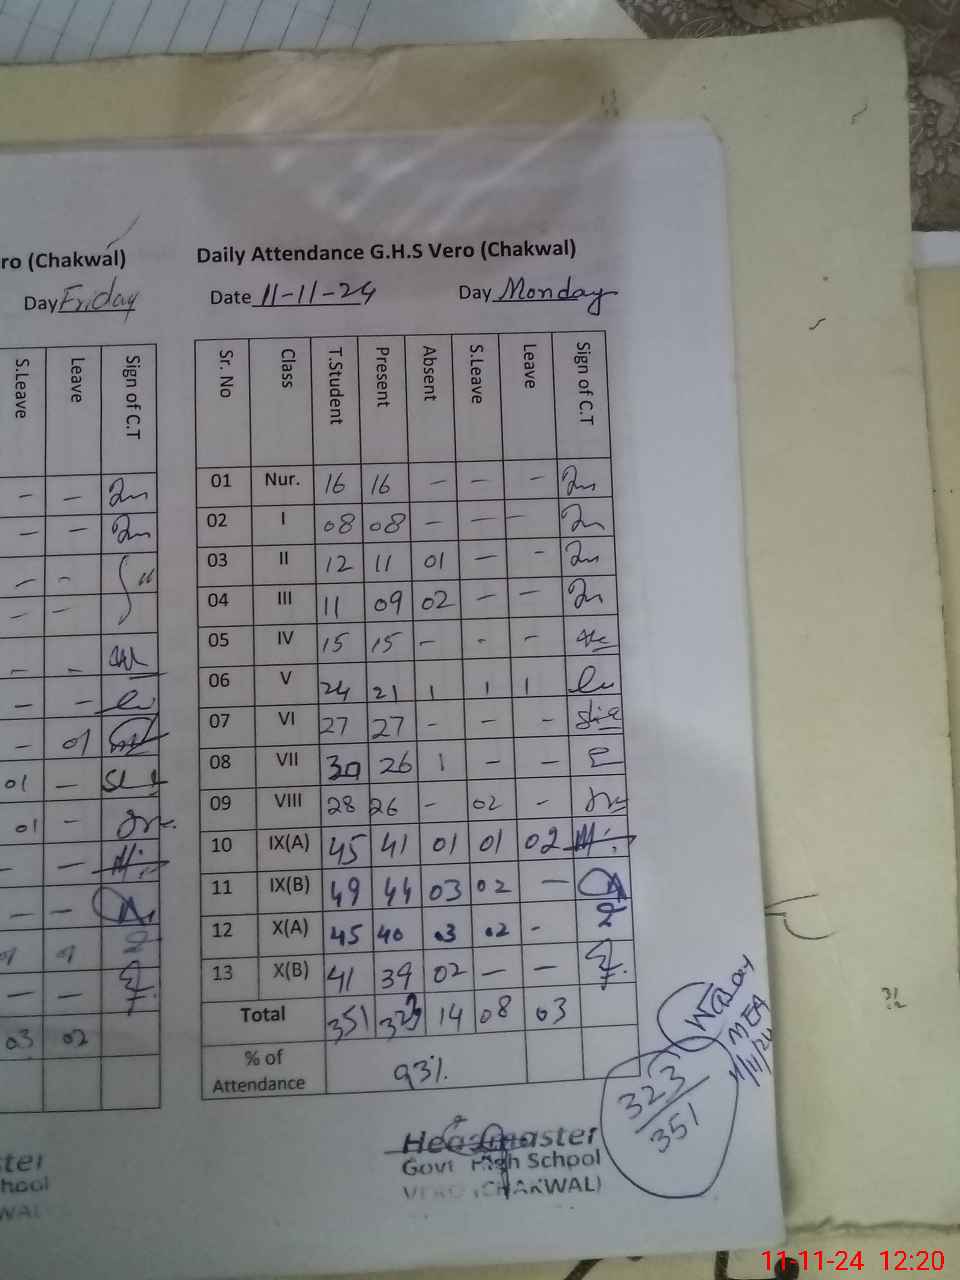 ro (Chakwal)
Day Friday
S.Leave Leave Sign of C.T
— —
— —
— —
— —
— —
— —
— 01
01 —
01 —
— —
— —
— —
03 02
Daily Attendance G.H.S Vero (Chakwal)
Date 11-11-24 Day Monday
Sr. No Class T.Student Present Absent S.Leave Leave Sign of C.T
01 Nur. 16 16 — — —
02 I 08 08 — — —
03 II 12 11 01 — -
04 III 11 09 02 — —
05 IV 15 15 - - -
06 V 24 21 1 1 1
07 VI 27 27 - — —
08 VII 30 26 1 — —
09 VIII 28 26 - 02 -
10 IX(A) 45 41 01 01 02
11 IX(B) 49 44 03 02 —
12 X(A) 45 40 03 02 -
13 X(B) 41 39 02 — —
Total 351 323 14 08 03
% of Attendance 93%
323
351
MEA
11/11/24
Headmaster
Govt High School
VERO (CHAKWAL)
ster
hool
WAL
31
12
11-11-24 12:20